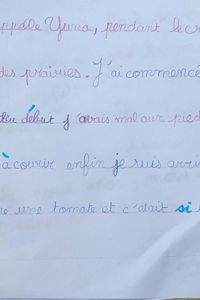 appelle Yuna, pendant le cr
des prairies. J'ai commencé
Au début j'avais mal aux pied
à courir enfin je suis arri
une tomate et c'était si